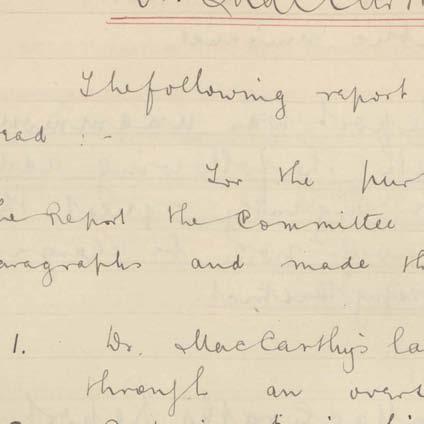 The following report
ead :-
For the pur
he Report the Committee
aragraphs and made th
1. Dr. MacCarthy's la
through an overs